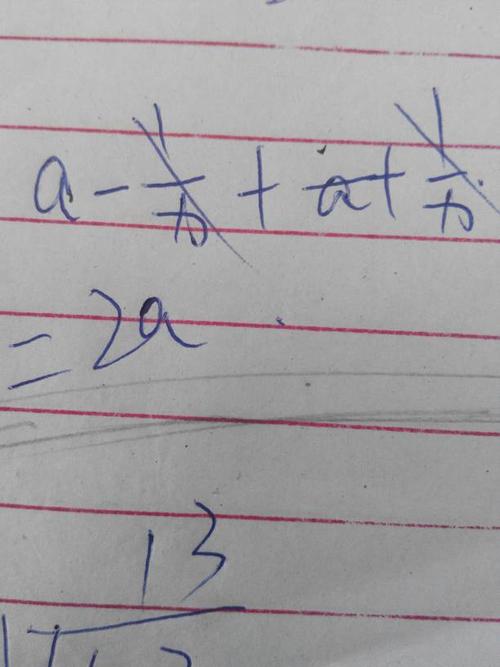 a - 1/n + a + 1/n
= 2a
13